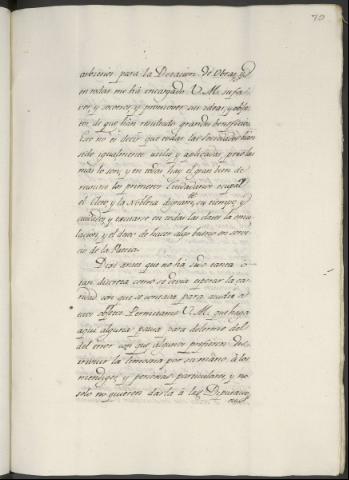 70
arbitrios para la Duracion de Obras, q.e
en todas me há encargado V. M. su fa-
vor, y socorro, y promover sus ideas, y obje-
tos, de que hán resultado grandes beneficios.
Esto no es decir que todas las Sociedades hán
sido igualmente utiles y aplicadas, pero las
mas lo son, y en todas hay el gran bien de
reunirse los primeros Ciudadanos, ocupar
el Clero, y la Nobleza dignam.te su tiempo, y
cuidados, y excitarse en todas las clases la emu-
lacion, y el deseo de hacer algo bueno en servi-
cio de la Patria.
Dias antes que no há sido tanta ó
tan discreta como se devia esperar la ca-
ridad con que se contava para ayudar á
estos obgetos. Permitame V. M. que haga
aqui alguna pausa para dolerme del
del error con que algunos prefieren dis-
tribuir la limosna por su mano, á los
mendigos, y personas particulares, y no
solo no quieren darla á las Diputacio-
nes